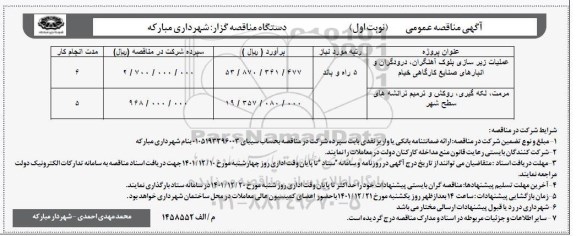 آگهی مناقصه عمومی (نوبت اول) دستگاه مناقصه گزار: شهرداری مبارکه
عنوان پروژه رتبه مورد نیاز برآورد ( ریال) سپرده شرکت در مناقصه (ریال) مدت انجام کار
عملیات زیر سازی بلوک آهنگران، درودگران و انبارهای صنایع کارگاهی خیام ۵ راه و باند ۵۳ / ۸۷۰ / ۳۴۱ / ۴۷۷ ۲ / ۷۰۰ / ۰۰۰ / ۰۰۰ ۴
مرمت، لکه گیری، روکش و ترمیم ترانشه های سطح شهر ۱۹ / ۳۵۷ / ۰۸۰ / ۰۰۰ ۹۶۸ / ۰۰۰ / ۰۰۰ ۵
شرایط شرکت در مناقصه :
۱ - مبلغ و نوع تضمین شرکت در مناقصه: ارائه ضمانتنامه بانکی یا واریز نقدی بابت سپرده شرکت در مناقصه بحساب سیبای ۰۱۰۵۱۹۳۳۹۶۰۰۳ بنام شهرداری مبارکه
۲ - شرکت کنندگان بایستی رعایت قانون منع مداخله کارکنان دولت در معاملات را بنمایند.
۳ - مهلت دریافت اسناد : متقاضیان می توانند از تاریخ درج آگهی در روزنامه و سامانه "ستاد" تا پایان وقت اداری روز چهارشنبه مورخ ۱۴۰۱/۱۲/۱۰ جهت دریافت اسناد مناقصه به سامانه تدارکات الکترونیک دولت
مراجعه نمایند.
۴ - آخرین مهلت تسلیم پیشنهادها: مناقصه گران بایستی پیشنهادات خود را حداکثر تا پایان وقت اداری روز شنبه مورخ ۱۴۰۱/۱۲/۲۰ در سامانه ستاد بارگذاری نمایند.
۵ - زمان بازگشایی پیشنهادات : ساعت ۱۴ بعدازظهر روز یکشنبه مورخ ۱۴۰۱/۱۲/۲۱ با حضور اعضای کمیسیون عالی معاملات در محل ساختمان شهرداری خواهد بود.
۶ - شهرداری در رد یا قبول پیشنهادات ارسالی مختار می باشد
۷ - سایر اطلاعات و جزئیات مربوطه در اسناد و مدارک مناقصه درج گردیده است.
م / الف ۱۴۵۸۵۵۲ محمد مهدی احمدی - شهردار مبارکه
ParsNamadData
۰۲۱-۸۸۳۴۹۶۷۰-۵